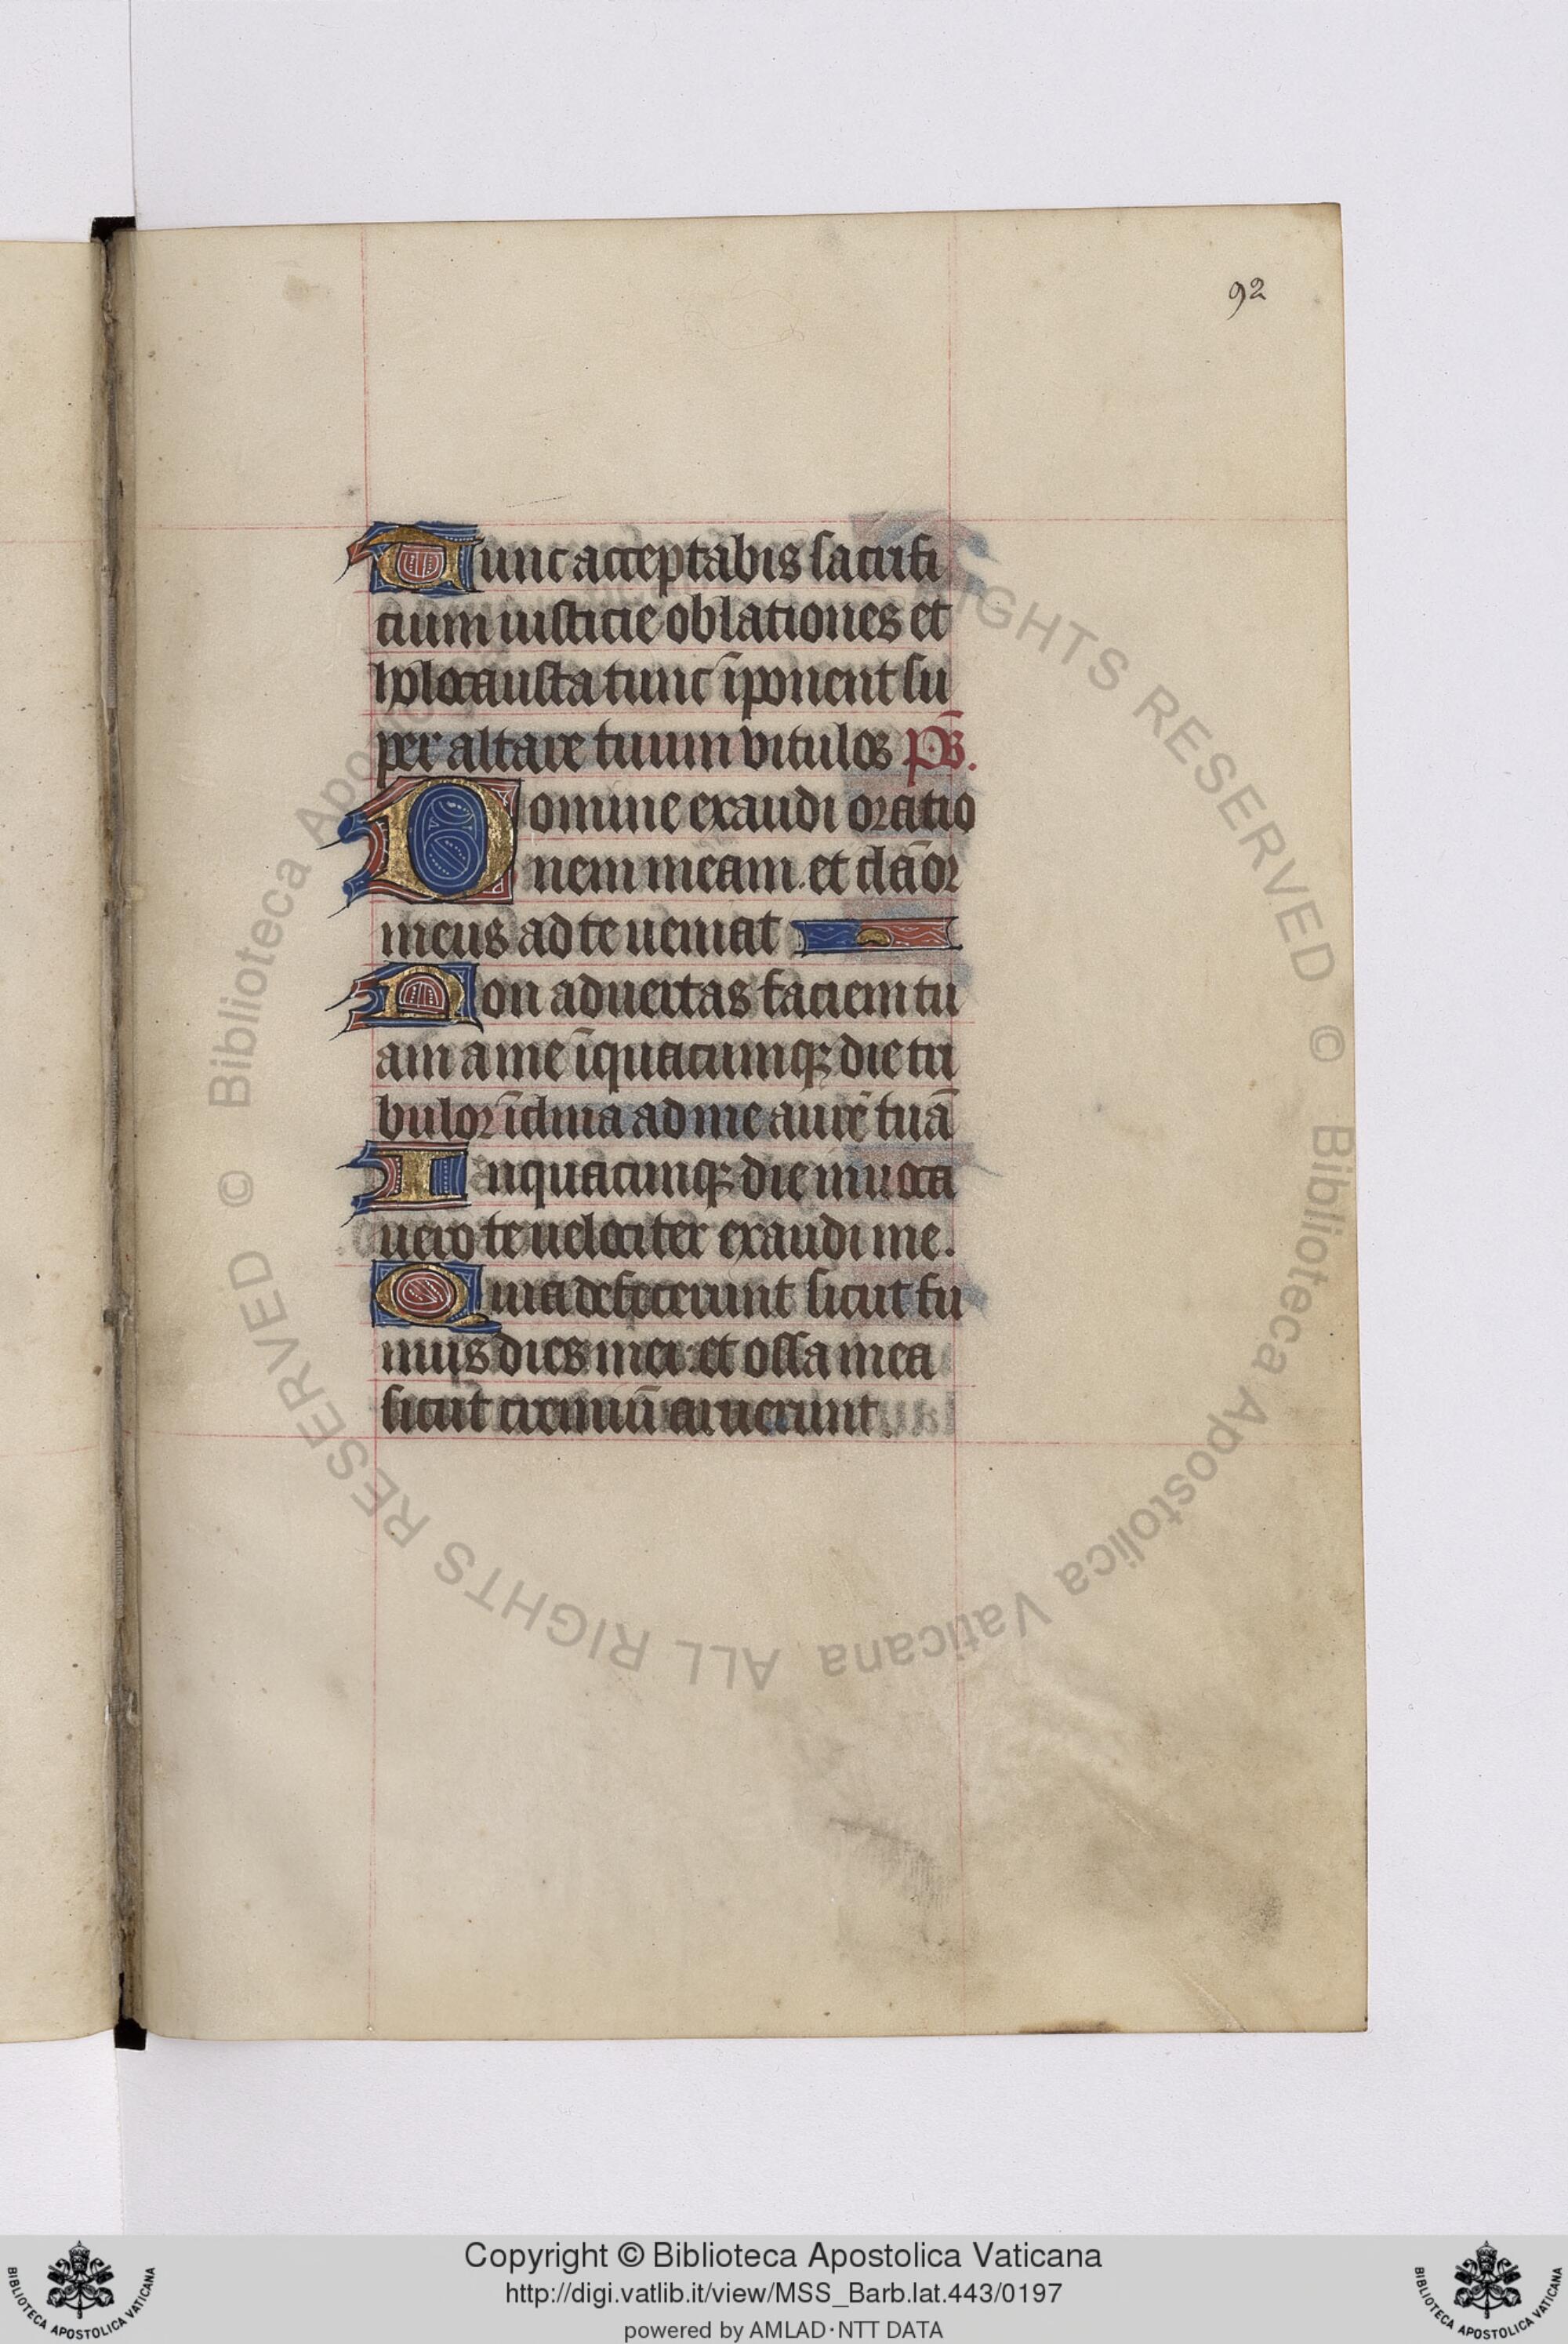 92
Tunc acceptabis sacrifi
cium iusticie oblationes et
holocausta tunc īponent su
per altare tuum vitulos ps̄.
Domine exaudi oratio
nem meam. et clāor
meus ad te ueniat
Non aduertas faciem tu
am a me ī quacumqꝫ die tri
bulor īclina ad me aurē tuā
In quacunqꝫ die inuoca
uero te uelociter exaudi me.
Quia defecerunt sicut fu
mus dies mei: et ossa mea
sicut cremiū aruerunt.
© Biblioteca Apostolica Vaticana ALL RIGHTS RESERVED © Biblioteca Apostolica Vaticana ALL RIGHTS RESERVED
Copyright © Biblioteca Apostolica Vaticana
http://digi.vatlib.it/view/MSS_Barb.lat.443/0197
powered by AMLAD·NTT DATA
BIBLIOTECA APOSTOLICA VATICANA
BIBLIOTECA APOSTOLICA VATICANA